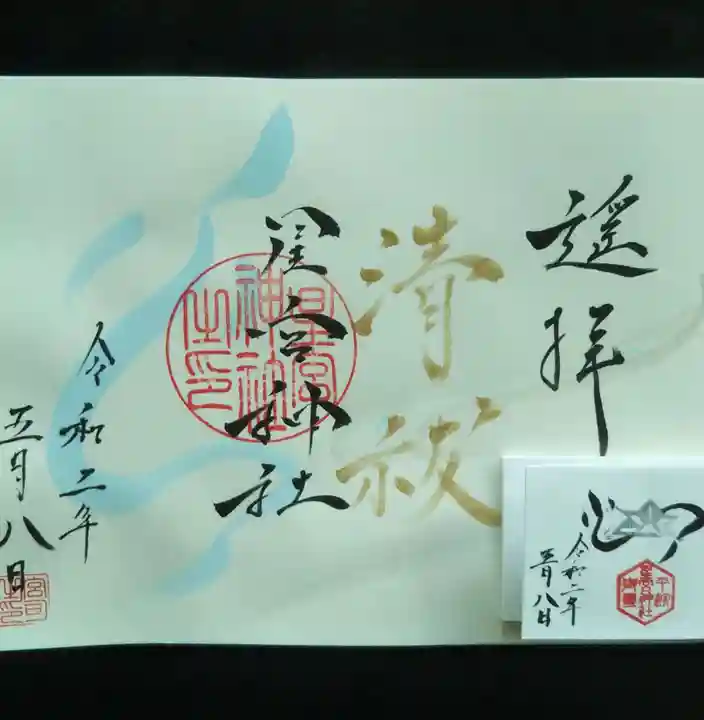 遥拝
清祓
星宮神社
星宮
神社
之印
令和二年
五月八日
令和二年
五月八日
星宮神社